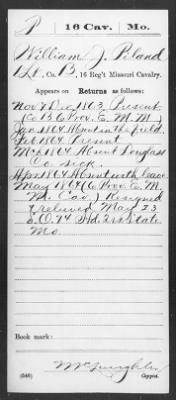 P 16 Cav. Mo.
William J. Piland
Lt., Co. B, 16 Reg't Missouri Cavalry.
Appears on Returns as follows:
Nov & Dec 1863 Present
(Co B 6 Prov. E. M. M.)
Jan 1864 Absent in the field.
Feb 1864 Present
Mch 1864 Absent Douglass
Co. sick.
Apr 1864 Absent with leave
May 1864 (6 Prov. E. M.
M. Cav.) Resigned
& relieved May 23
S.O. 74 Hd. Qrs State
Mo.
Book mark:
McLaughlin
(546) Copyist.